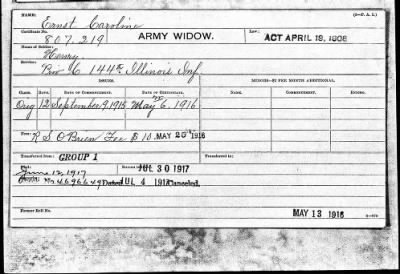 NAME: Ernst Caroline (3-P. A. L.)
Certificate No. 807,219 ARMY WIDOW. Law: ACT APRIL 19, 1908
Name of Soldier: Henry,
Service: Priv C 144th Illinois Inf
ISSUES. MINORS—$2 PER MONTH ADDITIONAL.
CLASS. RATE. DATE OF COMMENCEMENT. DATE OF CERTIFICATE. NAME. COMMENCING. ENDING.
Orig 12 September 9, 1915 May 6, 1916.
Fees: R S O'Brien Fee $10. MAY 20 1916
Transferred from: GROUP 1 Transferred to:
Died: June 12, 1917 JUL 30 1917
No 4696649 Dated JUL 4 1917 Canceled.
Former Roll No. MAY 13 1916